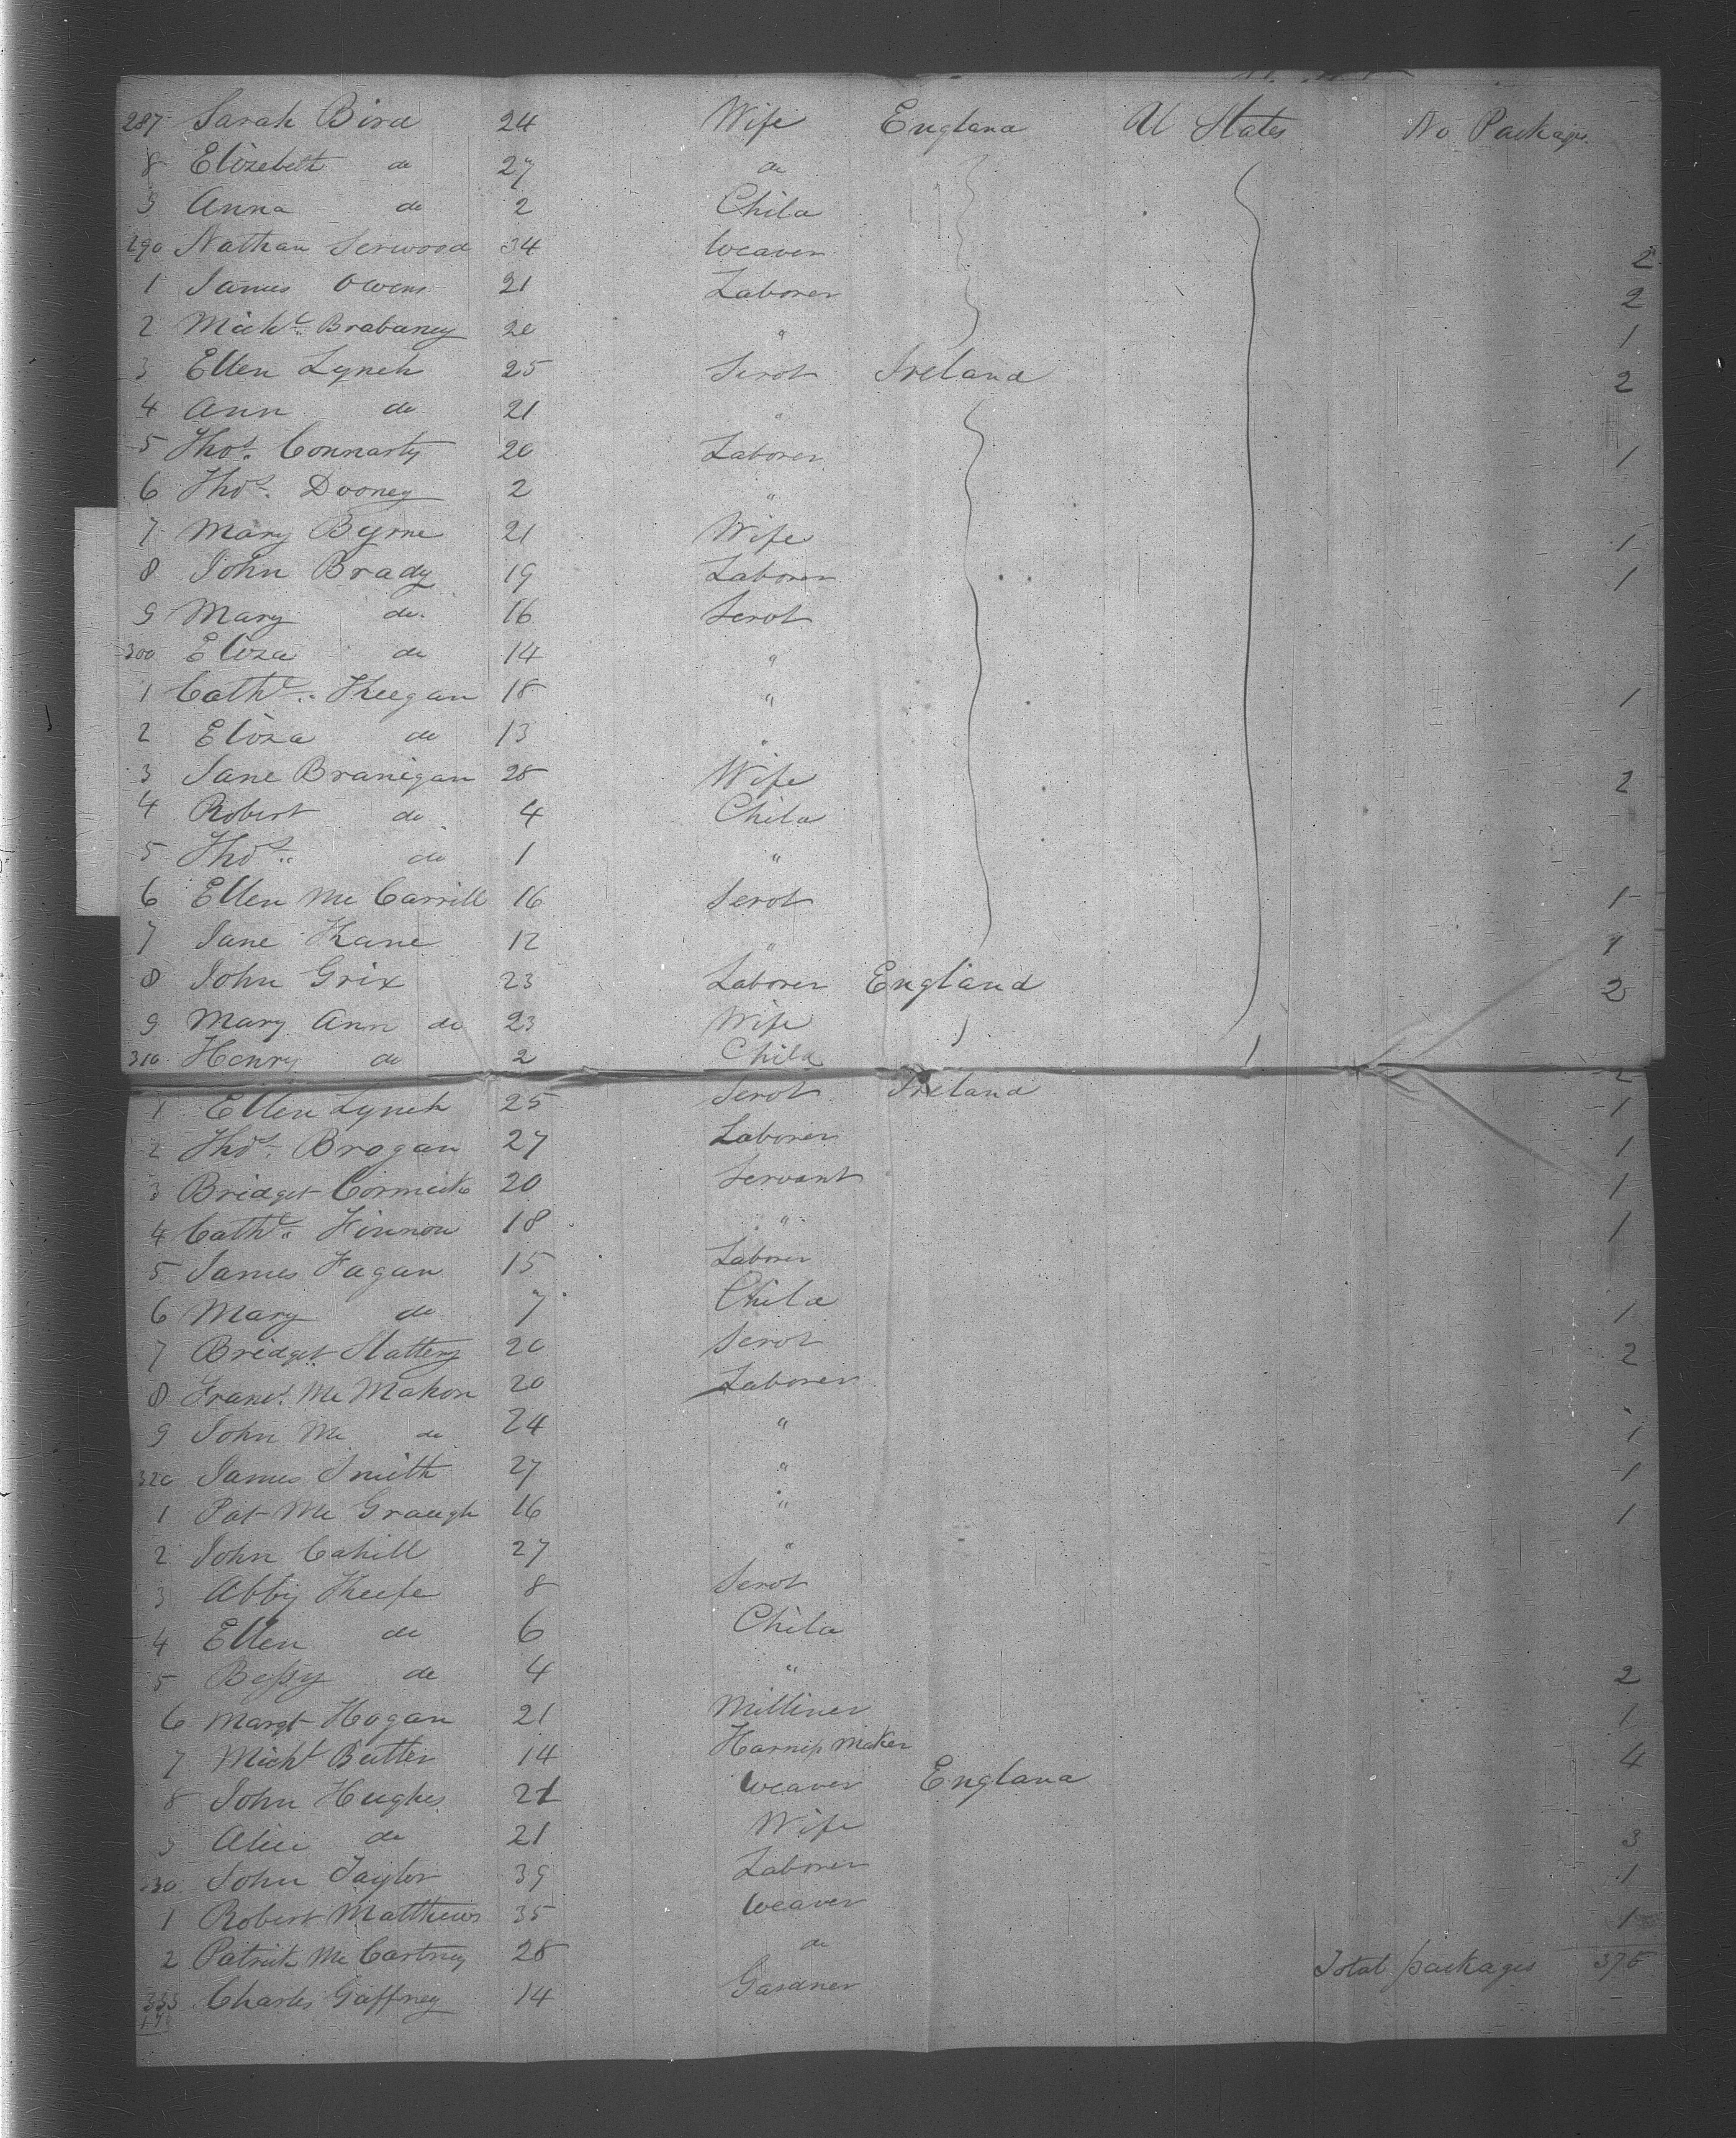 287 Sarah Bird 24 Wife England U States No Packages
8 Elizebeth do 27 do
9 Anna do 2 Child
290 Nathan Serwood 34 Weaver 2
1 James Owens 21 Laborer 2
2 Michl Brabaney 20 " 1
3 Ellen Lynch 25 Servt Ireland 2
4 Ann do 21 "
5 Thos. Connarty 20 Laborer 1
6 Thos. Dooney 2 "
7 Mary Byrne 21 Wife 1
8 John Brady 19 Laborer 1
9 Mary do. 16 Servt
300 Eliza do 14 "
1 Cathe. Keegan 18 " 1
2 Eliza do 13 "
3 Jane Branigan 28 Wife 2
4 Robert do 4 Child
5 Thos. do 1 "
6 Ellen Mc Carrill 16 Servt 1
7 Jane Kane 12 " 1
8 John Grix 23 Laborer England 2
9 Mary Ann do 23 Wife
310 Henry do 2 Child
1 Ellen Lynch 25 Servt Ireland 1
2 Thos. Brogan 27 Laborer 1
3 Bridget 20 Servant 1
4 Cathe. Finnon 18 " 1
5 James Fagan 15 Laborer
6 Mary do 7 Child 1
7 Bridget Slattery 20 Servt 2
8 Frans. Mc Mahon 20 Laborer
9 John Mc do 24 " 1
320 James Smith 27 " 1
1 Pat Mc Graugh 16 " 1
2 John Cahill 27 "
3 Abby Keefe 8 Servt
4 Ellen do 6 Child
5 Bessy do 4 " 2
6 Margt Hogan 21 Milliner 1
7 Michl Butler 14 Harness Maker 4
8 John Hughes 21 Weaver England
9 Alice do 21 Wife 3
30 John Taylor 39 Laborer 1
1 Robert Matthews 35 Weaver 1
2 Patrick Mc Cartney 28 do Total packages 375
333 Charles Gaffney 14 Gardner